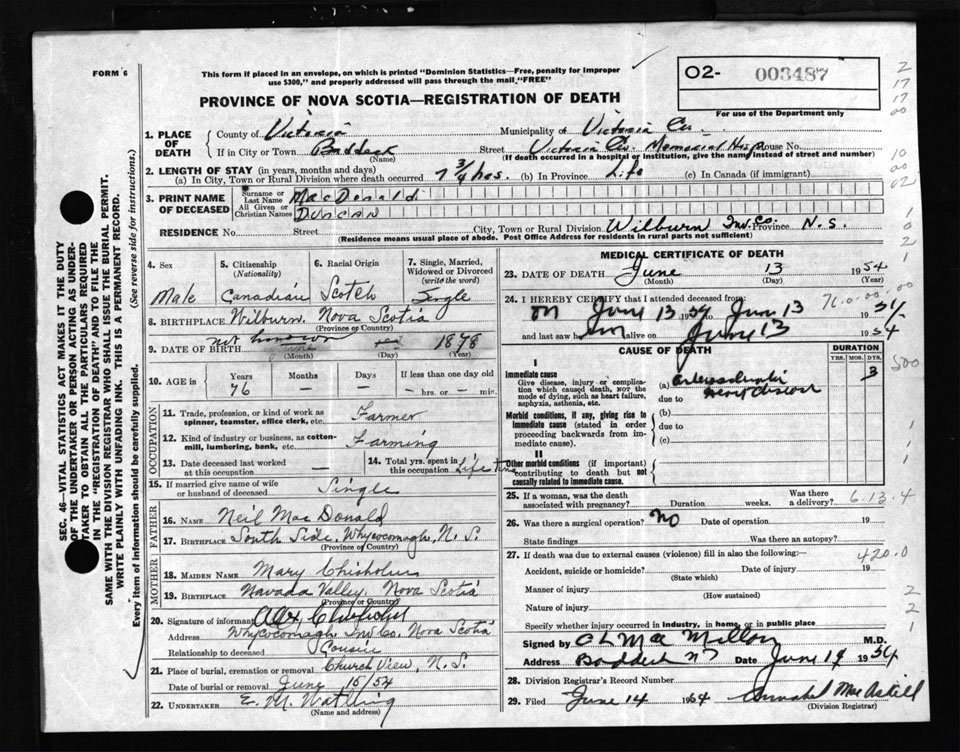 FORM 6
This form if placed in an envelope, on which is printed "Dominion Statistics—Free, penalty for improper
use $300," and properly addressed will pass through the mail "FREE"
O2- 003487
For use of the Department only
2
17
17
00
10
00
02
1
0
2
1
500
1
1
2
2
1
PROVINCE OF NOVA SCOTIA—REGISTRATION OF DEATH
1. PLACE OF DEATH
County of Victoria Municipality of Victoria Co.
If in City or Town Baddeck (Name) Street Victoria Co. Memorial Hosp House No.
(If death occurred in a hospital or institution, give the name instead of street and number)
2. LENGTH OF STAY (in years, months and days)
(a) In City, Town or Rural Division where death occurred 7 3/4 hrs. (b) In Province Life (c) In Canada (if immigrant)
3. PRINT NAME OF DECEASED
Surname or Last Name MacDonald
All Given or Christian Names DUNCAN
RESIDENCE No. Street City, Town or Rural Division Wilburn Inv. Co. Province N. S.
(Residence means usual place of abode. Post Office Address for residents in rural parts not sufficient)
4. Sex Male
5. Citizenship (Nationality) Canadian
6. Racial Origin Scotch
7. Single, Married, Widowed or Divorced (write the word) Single
8. BIRTHPLACE Wilburn, Nova Scotia
(Province or Country)
9. DATE OF BIRTH not known (Month) (Day) 1878 (Year)
10. AGE in Years 76 Months — Days — If less than one day old — hrs. or — min.
OCCUPATION
11. Trade, profession, or kind of work as spinner, teamster, office clerk, etc. Farmer
12. Kind of industry or business, as cotton-mill, lumbering, bank, etc. Farming
13. Date deceased last worked at this occupation —
14. Total yrs. spent in this occupation Life time
15. If married give name of wife or husband of deceased Single
FATHER
16. NAME Neil MacDonald
17. BIRTHPLACE South Side, Whycocomagh, N. S.
(Province or Country)
MOTHER
18. MAIDEN NAME Mary Chisholm
19. BIRTHPLACE Navada Valley, Nova Scotia
(Province or Country)
20. Signature of informant Alex Chisholm
Address Whycocomagh Inv Co. Nova Scotia
Relationship to deceased Cousin
21. Place of burial, cremation or removal Church View, N. S.
Date of burial or removal June 15/54
22. UNDERTAKER E. M. Watling
(Name and address)
MEDICAL CERTIFICATE OF DEATH
23. DATE OF DEATH June (Month) 13 (Day) 1954
24. I HEREBY CERTIFY that I attended deceased from: 76.0.00.00
on June 13 1954 to June 13 1954
and last saw him alive on June 13 1954
CAUSE OF DEATH
DURATION
YRS. MOS. DYS.
3
I
Immediate cause
Give disease, injury or complication which caused death, NOT the mode of dying, such as heart failure, asphyxia, asthenia, etc.
(a) Arteriosclerotic heart disease
due to
Morbid conditions, if any, giving rise to immediate cause (stated in order proceeding backwards from immediate cause).
(b)
due to
(c)
II
Other morbid conditions (if important) contributing to death but not causally related to immediate cause.
25. If a woman, was the death associated with pregnancy? Duration weeks. Was there a delivery? 6.13.4
26. Was there a surgical operation? No Date of operation 19
State findings Was there an autopsy?
27. If death was due to external causes (violence) fill in also the following:— 420.0
Accident, suicide or homicide? Date of injury 19
(State which)
Manner of injury
(How sustained)
Nature of injury
Specify whether injury occurred in industry, in home, or in public place
Signed by C L MacMillan M.D.
Address Baddeck NS Date June 14 1954
28. Division Registrar's Record Number
29. Filed June 14 1954 Annabel MacAskill
(Division Registrar)
SEC. 46—VITAL STATISTICS ACT MAKES IT THE DUTY
OF THE UNDERTAKER OR PERSON ACTING AS UNDER-
TAKER TO OBTAIN ALL THE PARTICULARS REQUIRED
IN THE "REGISTRATION OF DEATH" AND TO FILE THE
SAME WITH THE DIVISION REGISTRAR WHO SHALL ISSUE THE BURIAL PERMIT.
WRITE PLAINLY WITH UNFADING INK. THIS IS A PERMANENT RECORD.
Every item of information should be carefully supplied. (See reverse side for instructions.)